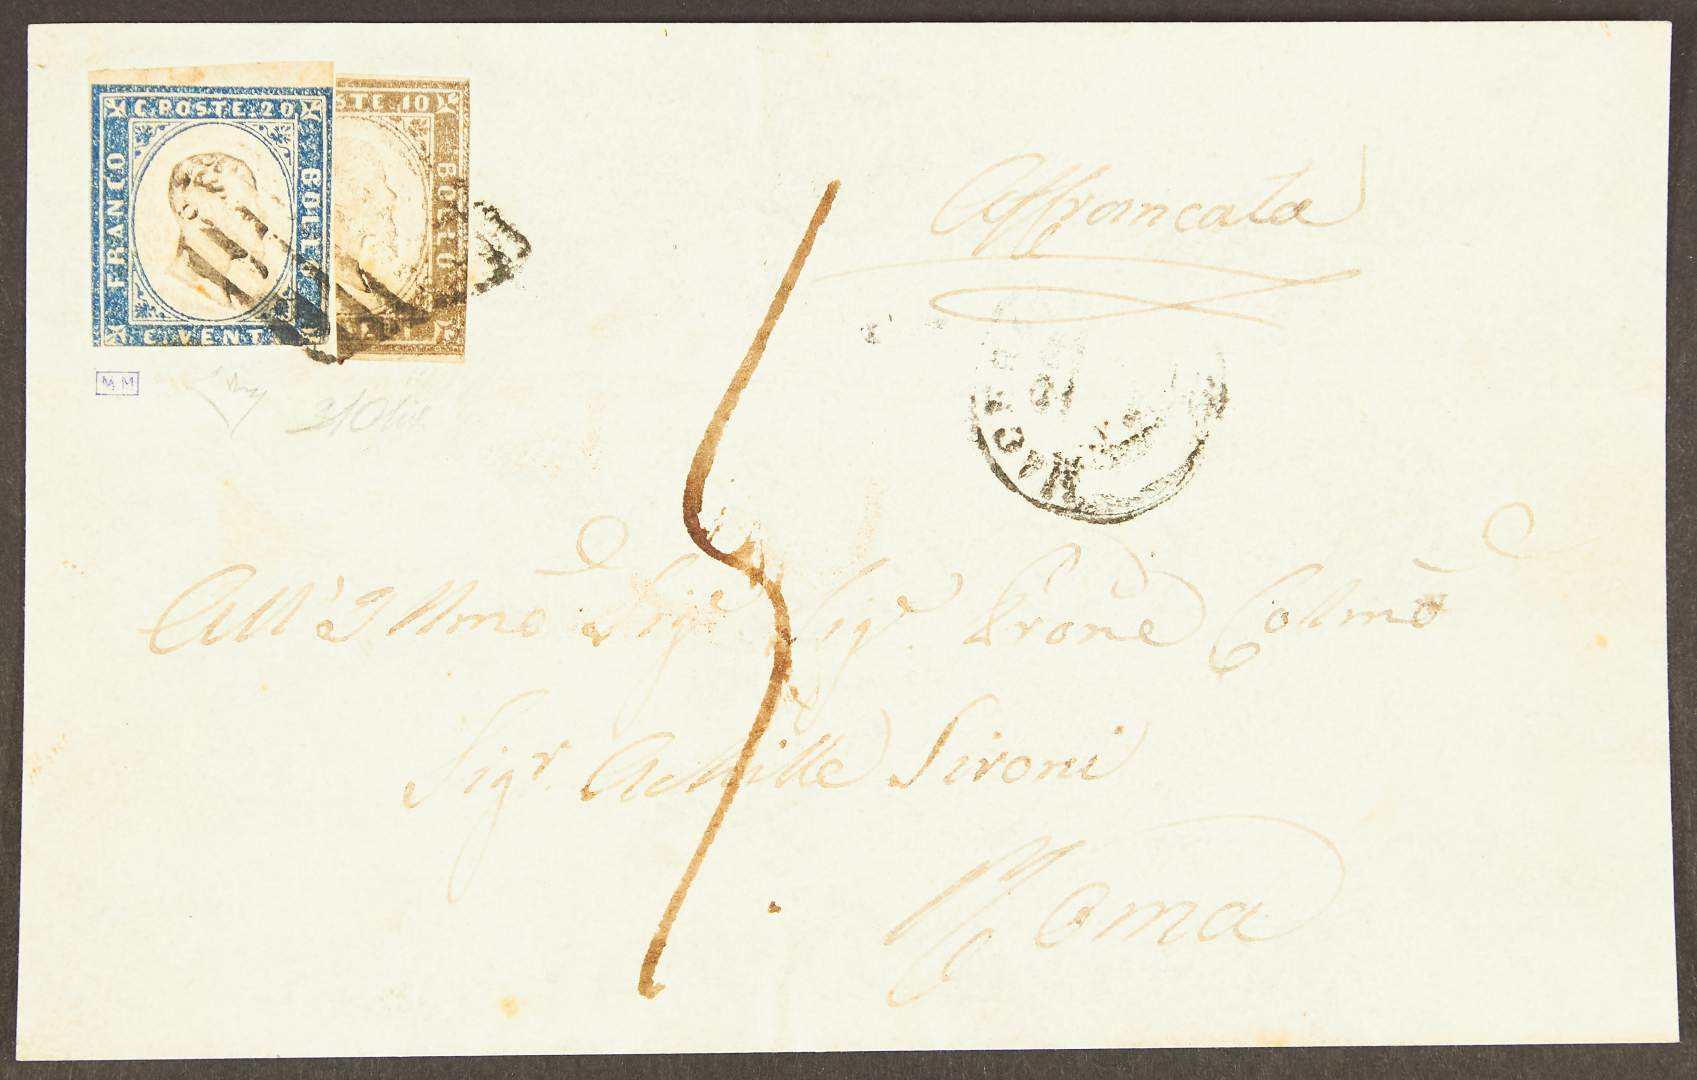 C. POSTE 20
FRANCO
BOLLO
C. VENTI
STE 10
BOLLO
Affrancata
MM
MAC
10
All' Illmo Sigr Sigr Prone Colmo
Sigr. Achille Sironi
Roma